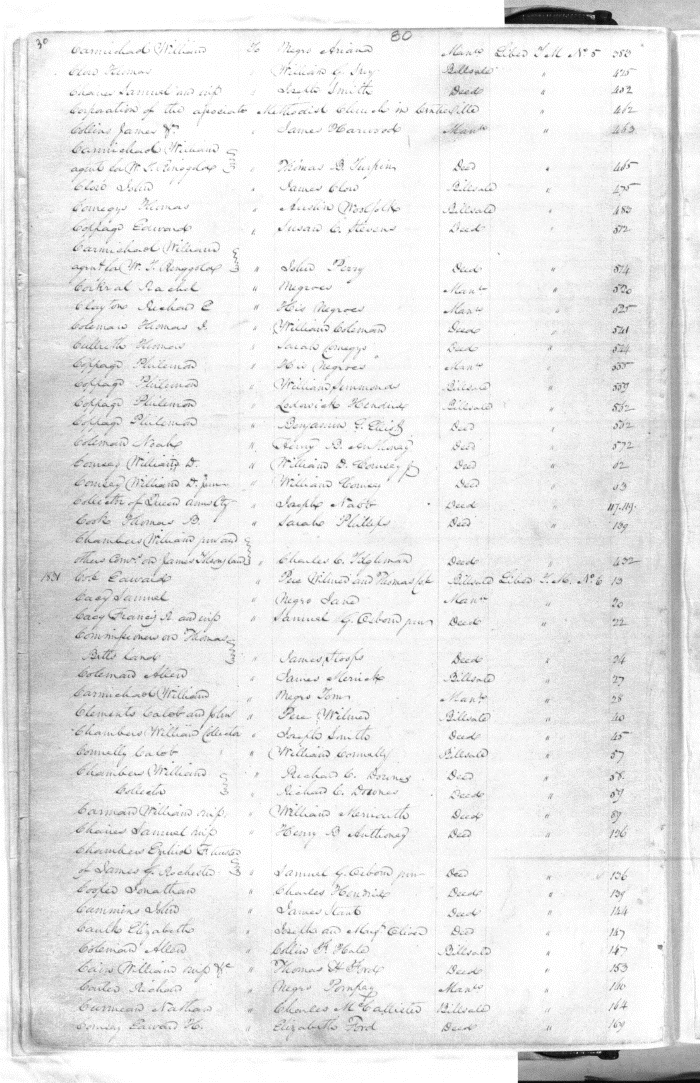 30 80
Carmichael William To Negro Ariana Manu Liber T M No 5 386
Clow Thomas " William G. Bill sale " 415
Chaires Samuel and wife " Joseph Smith Deed " 452
Corporation of the associate Methodist Church in Centreville " 462
Collins James &c " James Harwood Manu " 463
Carmichael William
agent for W. T. Ringgold " Thomas B. Turpin Deed " 465
Clow John " James Clow Bill sale " 475
Comegys Thomas " Austin Woolfolk Bill sale " 483
Coppage Edward " Susan C. Stevens Deed " 512
Carmichael William
agent for W. T. Ringgold " John Perry Deed " 514
Corkral Rachel " Negroes Manu " 520
Clayton Richard E " His Negroes Manu " 525
Coleman Thomas J. " William Coleman Deed " 541
Culbreth Thomas " Sarah Comegys Deed " 544
Coppage Philemon " His Negroes Manu " 555
Coppage Philemon " William Simmonds Bill sale " 559
Coppage Philemon " Lodwick Hendrix Bill sale " 562
Coppage Philemon " Benjamin G. Deed " 562
Coleman Noah " Henry B. Anthoney Deed " 572
Comsey William D. " William D. Comsey Jr Deed " 62
Comsey William D. Junr " William Comsey Deed " 63
Collector of Queen Anns Cty " Joseph Nabb Deed " 117.119
Cook Thomas B. " Sarah Phillips Deed " 139
Chambers William and
others Comrs on James land " Charles C. Tilghman Deed " 432
1831 Cole Edward " Pere Wilmer and Thomas Bill sale Liber T. M. No 6 13
Cacy Samuel " Negro Jane Manu " 20
Cacy Francis R and wife " Samuel G. Osborn Deed " 22
Commissioners on Thomas
Betts land " James Hoops Deed " 24
Coleman Allen " James Merick Bill sale " 27
Carmichael William " Negro Tom Manu " 28
Clements Calob and " Pere Wilmer Bill sale " 40
Chambers William Collector " Joseph Smith Deed " 45
Connelly Calob " William Connolly Bill sale " 57
Chambers William " Richard C. Downes Deed " 58
Collector " Richard C. Downes Deed " 59
Carman William wife " William Meredith Deed " 89
Chaires Samuel wife " Henry B Anthoney Deed " 126
Chambers Trustee
of James G. Rochester " Samuel G. Osborn Deed " 136
Cooper Jonathan " Charles Hendrix Deed " 139
Cummins John " James Deed " 144
Caulk Elizabeth " Joseph and Mary Oliver Deed " 147
Coleman Allen " Collin F. Hale Bill sale " 147
Cain William wife &c " Thomas H Ford Deed " 153
Carter Richard " Negro Pompey Manu " 160
Curmean Nathan " Charles McCallister Bill sale " 164
Comsey Edward H. " Elizabeth Ford Deed " 169